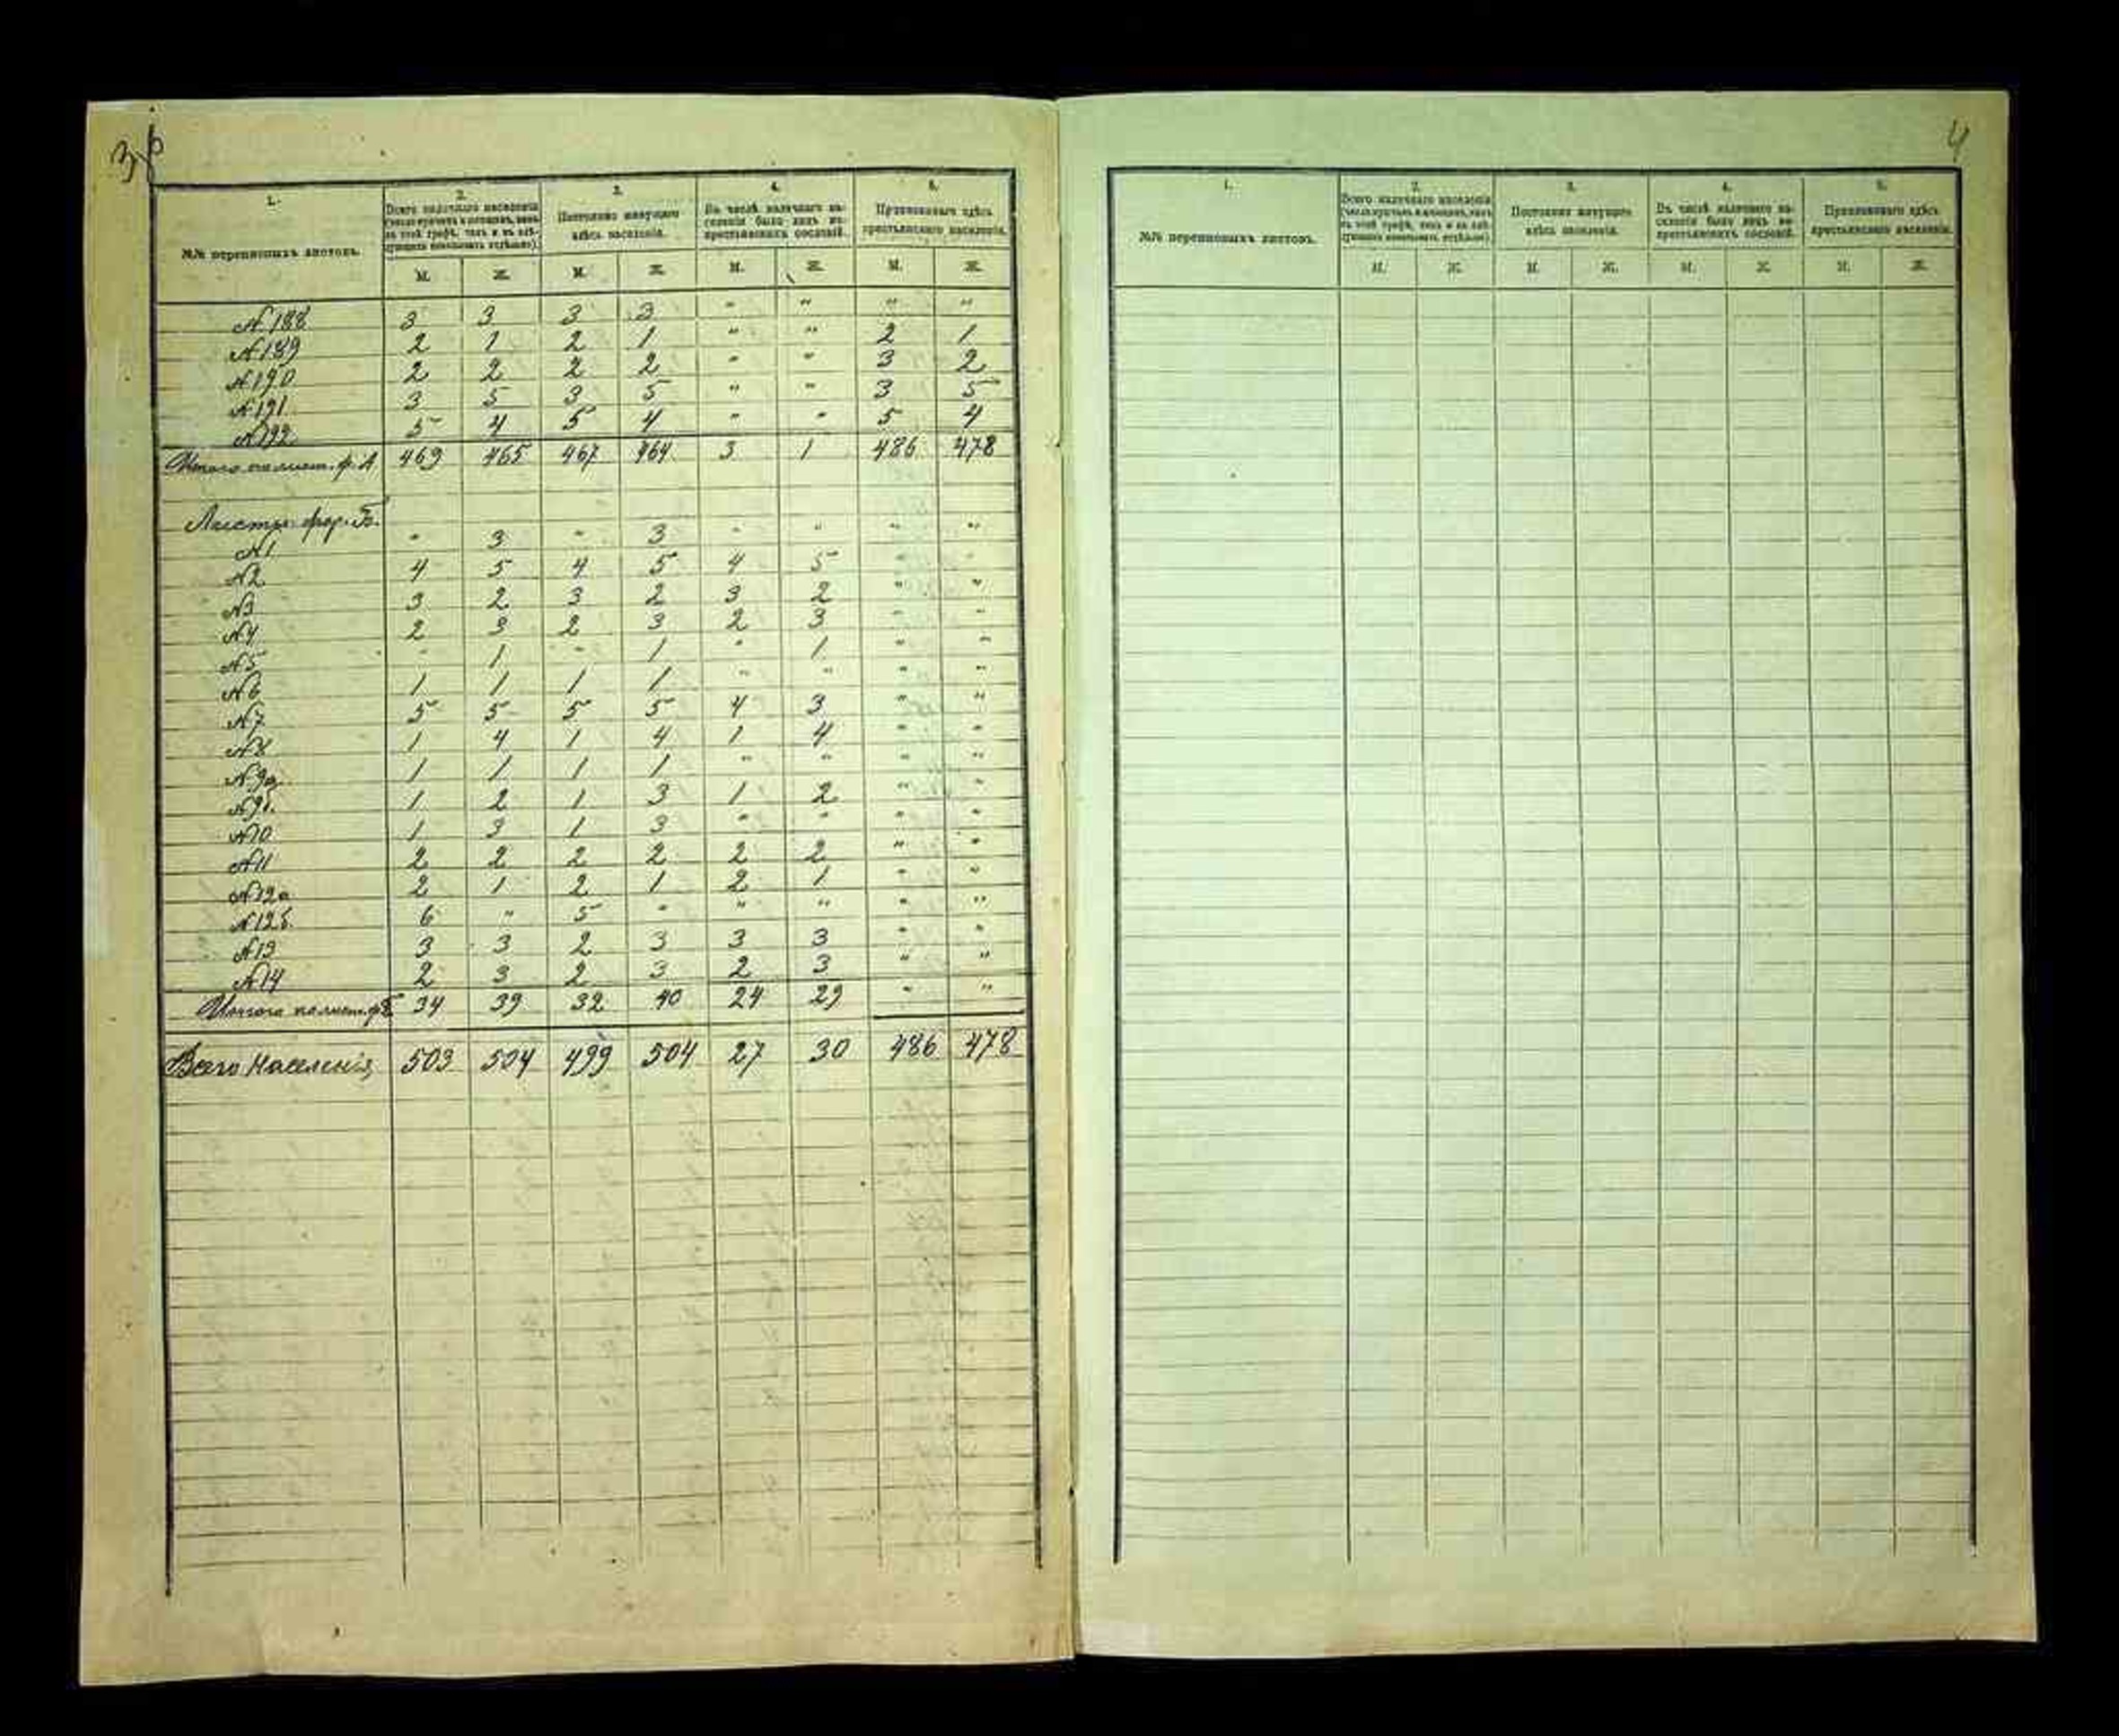 3 об
1.
№№ переписныхъ листовъ.
2.
Всего наличнаго населенія
3.
Постоянно живущаго
здѣсь населенія.
4.
Въ числѣ наличнаго на-
селенія было лицъ не-
крестьянскихъ сословій.
5.
Приписаннаго здѣсь
крестьянскаго населенія.
М. Ж. М. Ж. М. Ж. М. Ж.
№188 3 3 3 3 " " " "
№189 2 1 2 1 " " 2 1
№190 2 2 2 2 " " 3 2
№191 3 5 3 5 " " 3 5
№192 5 4 5 4 " " 5 4
Итого по лист. ф. А 469 465 467 464 3 1 486 478
Листы фор. Б.
№1 " 3 " 3 " " " "
№2 4 5 4 5 4 5 " "
№3 3 2 3 2 3 2 " "
№4 2 3 2 3 2 3 " "
№5 " 1 " 1 " 1 " "
№6 1 1 1 1 " " " "
№7 5 5 5 5 4 3 " "
№8 1 4 1 4 1 4 " "
№9а 1 1 1 1 " " " "
№9б. 1 2 1 3 1 2 " "
№10 1 3 1 3 " " " "
№11 2 2 2 2 2 2 " "
№12а 2 1 2 1 2 1 " "
№12б. 6 " 5 " " " " "
№13 3 3 2 3 3 3 " "
№14 2 3 2 3 2 3 " "
Итого по лист. ф Б. 34 39 32 40 24 29 " "
Всего Населенія 503 504 499 504 27 30 486 478
4
1.
№№ переписныхъ листовъ.
2.
Всего наличнаго населенія
3.
Постоянно живущаго
здѣсь населенія.
4.
Въ числѣ наличнаго на-
селенія было лицъ не-
крестьянскихъ сословій.
5.
Приписаннаго здѣсь
крестьянскаго населенія.
М. Ж. М. Ж. М. Ж. М. Ж.